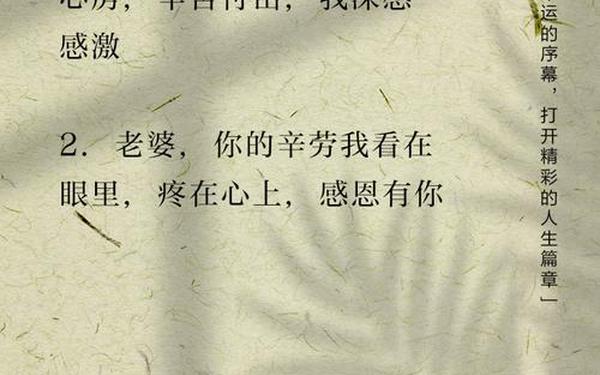 心房，辛苦付出，我深感
感激
2. 老婆，你的辛劳我看在
眼里，疼在心上，感恩有你
运的序幕，打开精彩的人生篇章」